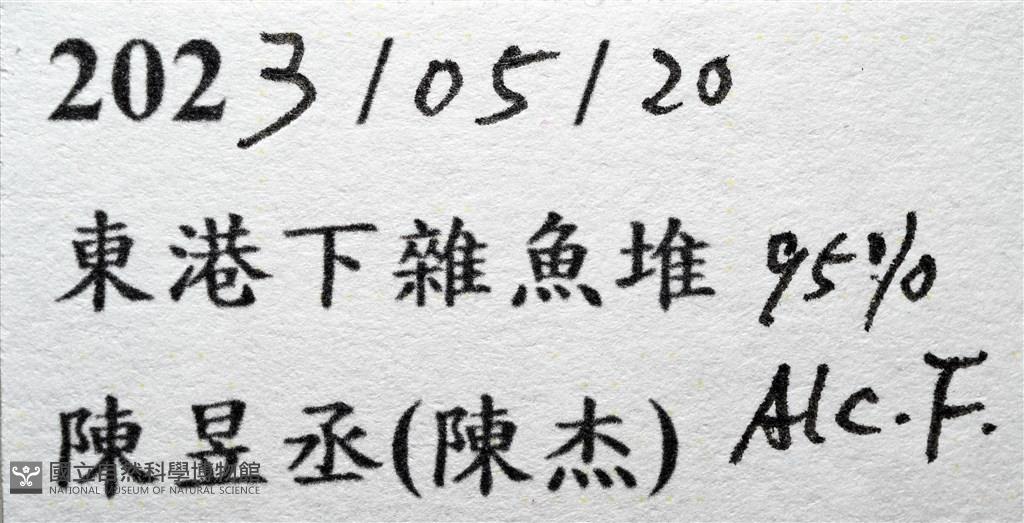 2023/05/20
東港下雜魚堆 95%
Alc. F.
陳昱丞(陳杰)
國立自然科學博物館
NATIONAL MUSEUM OF NATURAL SCIENCE